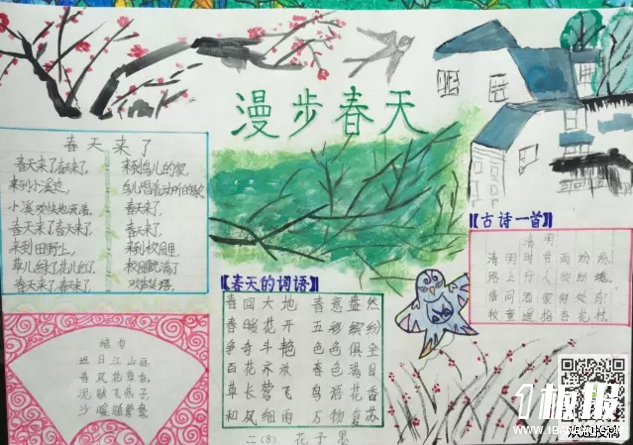 漫步春天
春天来了
春天来了春天来了,
来到小溪边,
小溪欢快地流着。
春天来了春天来了,
来到田野上,
草儿绿了花儿红了。
春天来了春天来了,
来到鸟儿的家,
鸟儿唱着动听的歌
春天来了,
春天来了,
来到校园里
校园充满了
欢声笑语。
【春天的词语】
春回大地 春意盎然
春暖花开 五彩缤纷
争奇斗艳 色色俱全
百花齐放 春色满目
草长莺飞 鸟语花香
和风细雨 万物复苏
【古诗一首】
清明
清明时节雨纷纷,
路上行人欲断魂。
借问酒家何处有
牧童遥指杏花村。
绝句
迟日江山丽,
春风花草香。
泥融飞燕子,
沙暖睡鸳鸯。
二(8) 花子墨
板报